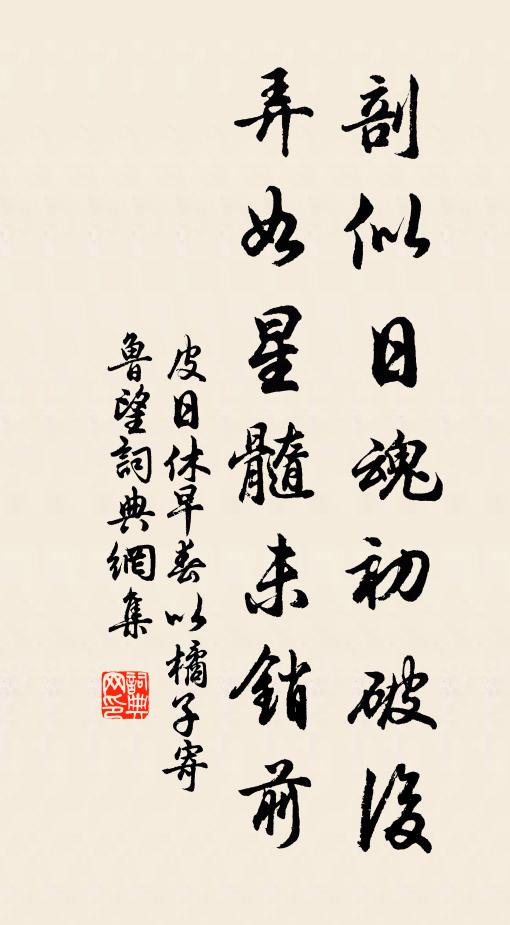 剖似日魂初破後
弄如星髓未銷前
皮日休早春以橘子寄
魯望詞典網集
詞典
网印